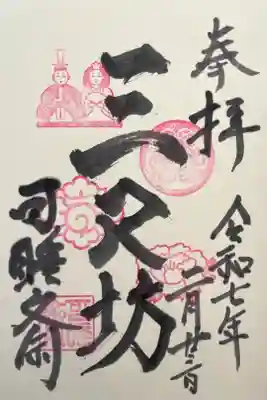 奉拝
令和七年
二月廿三日
三尺坊
可睡斎